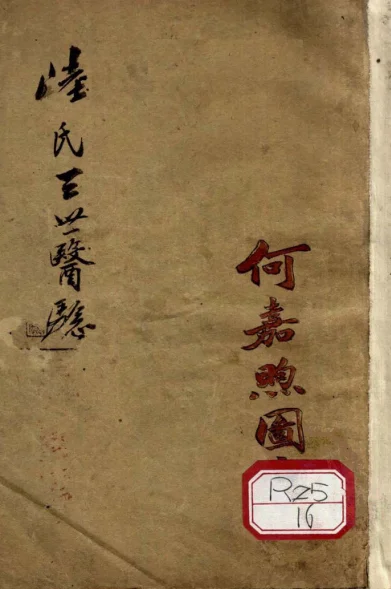 陸氏三世醫驗
何嘉煦圖
R25
16